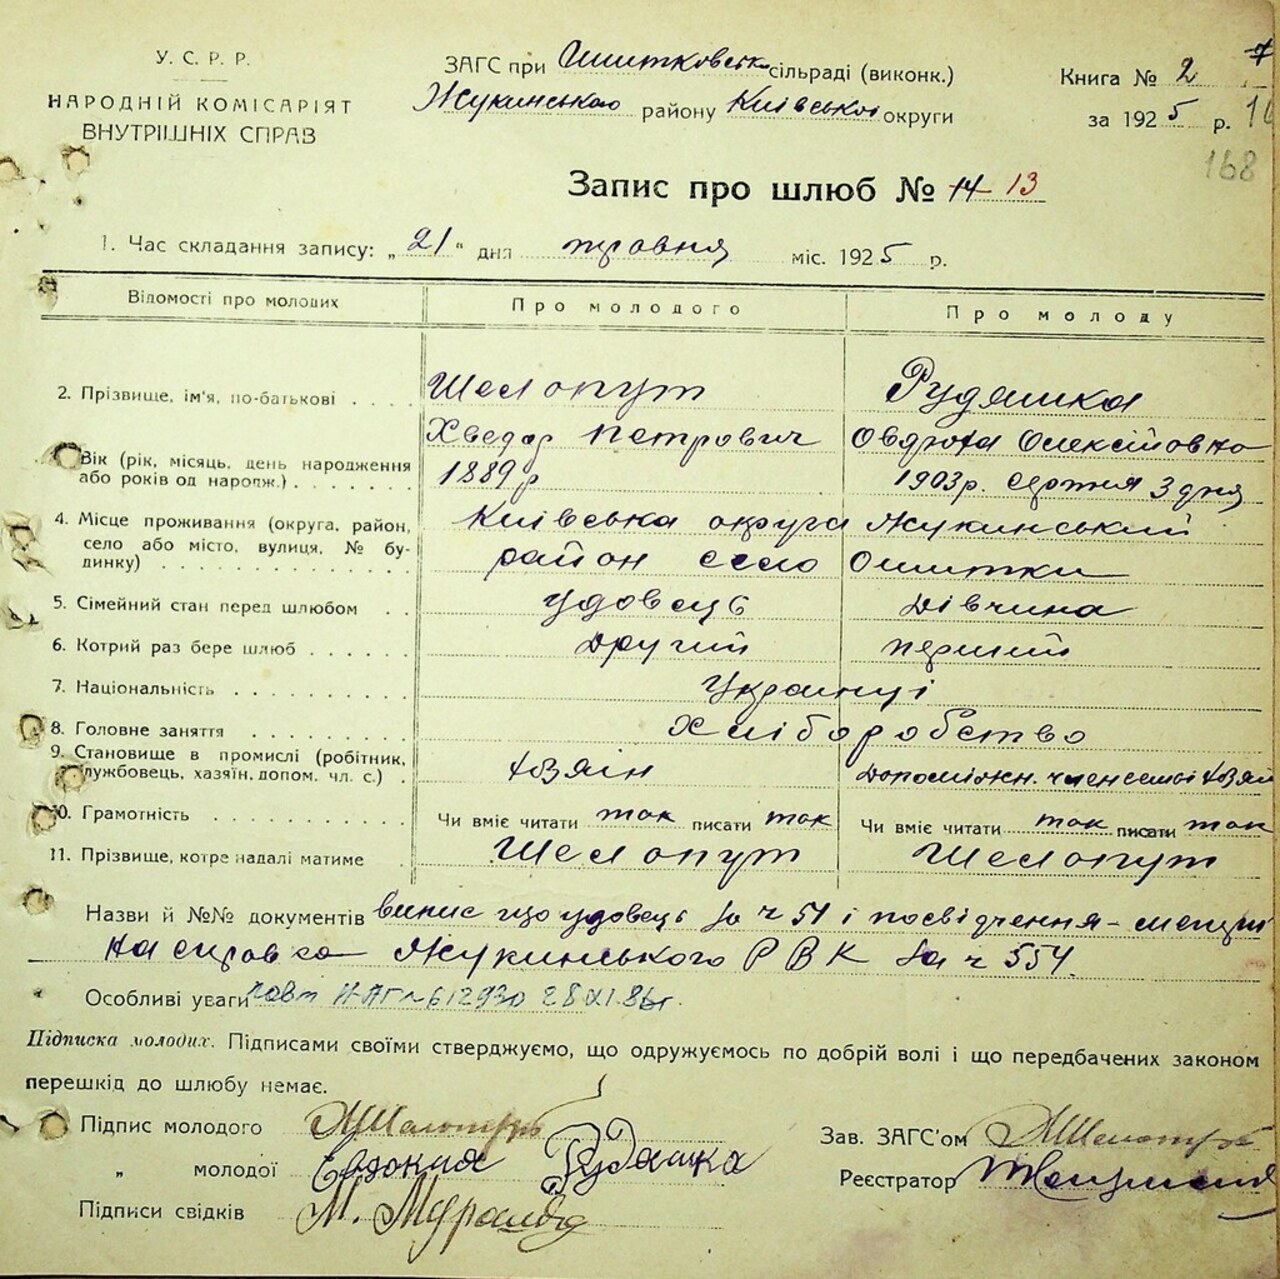 У. С. Р. Р.
НАРОДНІЙ КОМІСАРІЯТ
ВНУТРІШНІХ СПРАВ
ЗАГС при Ошитковськ сільраді (виконк.)
Жукинського району Київської округи
Книга № 2 7
за 1925 р. 16
168
Запис про шлюб № 14 13
1. Час складання запису: „21“ дня травня міс. 1925 р.
Відомості про молодих Про молодого Про молоду
2. Прізвище, ім'я, по-батькові . . . . Шелопут Рудяшка
Хведор Петрович Овдюха Олексійовна
3. Вік (рік, місяць, день народження
або років од нарож.) . . . . . . . 1889р 1903р. серпня 3 дня
4. Місце проживання (округа, район, Київська округа Жукинський
село або місто, вулиця, № бу-
динку) . . . . . . . . . . . . . район село Ошитки
5. Сімейний стан перед шлюбом . . удовець дівчина
6. Котрий раз бере шлюб . . . . . . другий перший
7. Національність . . . . . . . . . . Українці
8. Головне заняття . . . . . . . . . Хліборобство
9. Становище в промислі (робітник,
службовець, хазяїн, допом. чл. с.) . хзяїн допоміжн. член семьї хзяї
10. Грамотність . . . . . . . . . . . Чи вміє читати так писати так Чи вміє читати так писати так
11. Прізвище, котре надалі матиме Шелопут Шелопут
Назви й №№ документів випис що удовець за ч 51 і посвідчення -
на справка Жукинського РВК за ч 554.
Особливі уваги повт 612930 28 XI.86г.
Підписка молодих. Підписами своїми стверджуємо, що одружуємось по добрій волі і що передбачених законом
перешкід до шлюбу немає.
Підпис молодого
„ молодої Евдокия Рудашка
Підписи свідків М.
Зав. ЗАГС'ом
Реєстратор